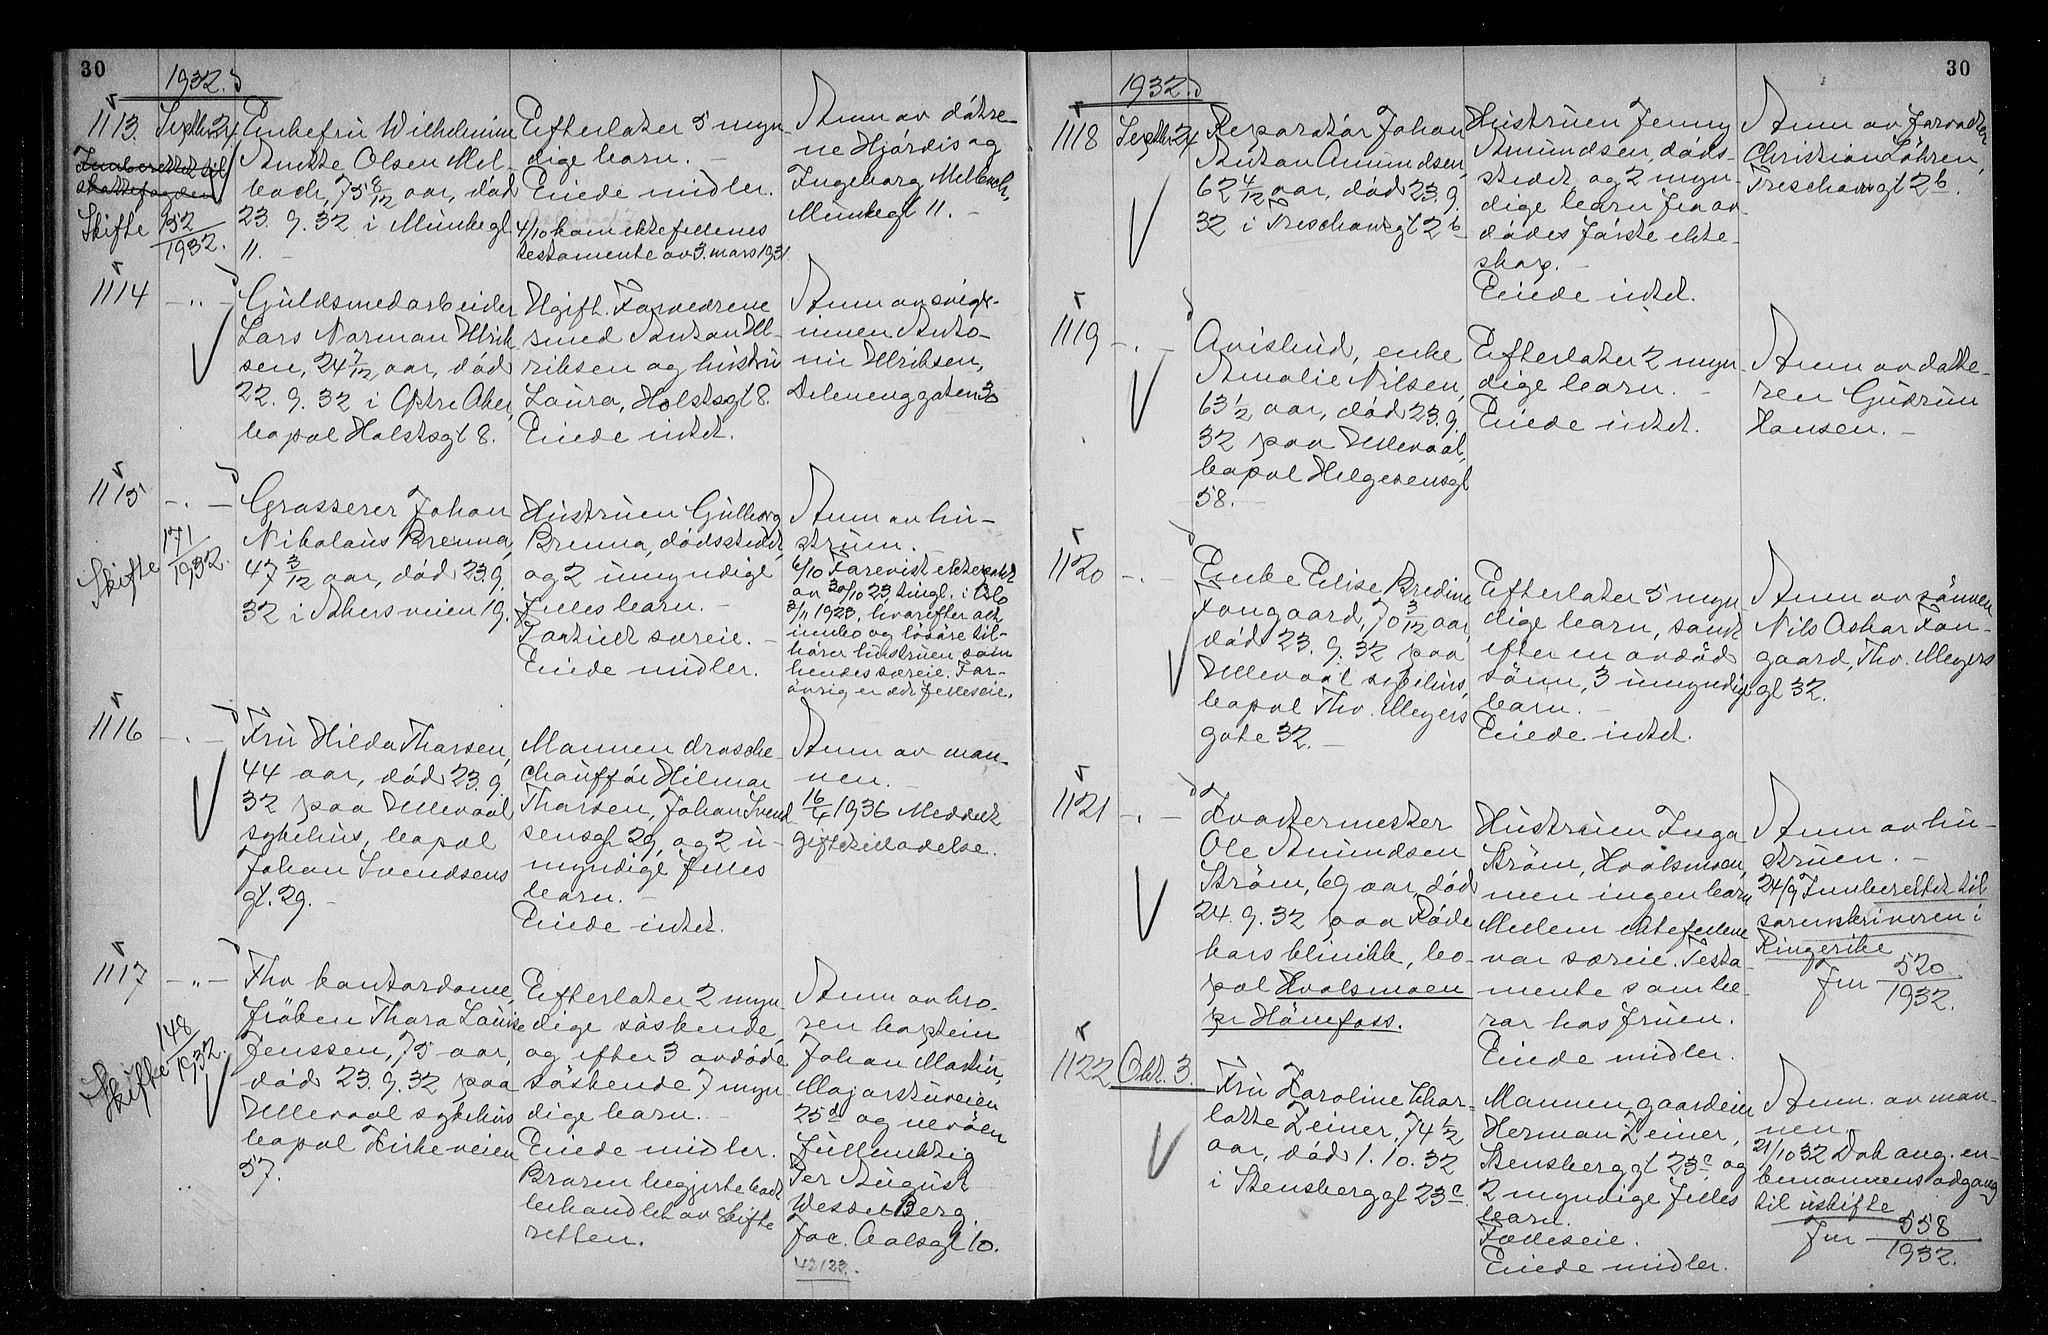 30
1932.
1113. Septbr. 24.
Innberettet til
skattefogden
Skifte 152/1932.
Enkefru Wilhelmine
Anette Olsen Mel-
bach, 75 8/12 aar, död
23. 9. 32 i Munkegt.
11. -
Efterlater 5 myn-
dige barn. -
Eiede midler.
4/10 kom ektefellenes
testamente av 3. mars 1931.
Anm av dötre-
ne Hjördis og
Ingeborg Melbach,
Munkegt 11. -
1114 - " -
Guldsmedarbeider
Lars Norman Ulrik
sen, 24 7/12 aar, död
22. 9. 32 i Östre Aker,
bopæl Holstsgt 8.
Ugift. Forældrene
smed Anton Ul-
riksen og hustru
Laura, Holstsgt 8.
Eiede intet.
Anm av sviger-
innen Anto-
nie Ulriksen,
Delenenggaten 3
1115 - " -
Skifte 171/1932.
Grosserer Johan
Nikolaus Brenna,
47 3/12 aar, död 23. 9.
32 i Akersveien 19.
Hustruen Gulborg
Brenna, dödsstedet,
og 2 umyndige
felles barn. -
Formuet særeie. -
Eiede midler.
Anm av hu-
struen. -
6/10 Forevist ektepakt
av 30/10 23, tingl. i Oslo
2/11 1923, hvorefter alt
innbo og lösöre til-
hörer hustruen som
hendes særeie. For-
övrig er det felleseie.
1116 - " -
Fru Hilda Thorsen,
44 aar, död 23. 9.
32 paa Ullevaal
sykehus, bopæl
Johan Svendsens
gt. 29. -
Mannen drosche-
chaufför Hilmar
Thorsen, Johan Svend
sensgt 29, og 2 u-
myndige felles
barn. -
Eiede intet.
Anm av man-
nen. -
16/4 1936 Meddelt
giftetilladelse.
1117 - " -
Skifte 148/1932.
Fhv kontordame,
fröken Thora Louise
Jenssen, 75 aar,
död 23. 9. 32 paa
Ullevaal sykehus
bopæl Kirkeveien
57.
Efterlater 2 myn-
dige söskende,
og efter 3 avdöde
söskende 7 myn
dige barn. -
Eiede midler.
Broren begjærte boet
behandlet av skifte
retten.
Anm av bro-
ren kaptein
Johan Martin,
Majorstuveien
25d og nevöen
fullmektig
Per August
Wessel-Berg
Jac. Aalsgt 10.
42123.
30
1932.
1118 Septbr. 24
Reparatör Johan
Anton Amundsen,
62 4/12 aar, död 23. 9.
32 i Treschowsgt 2b
Hustruen Jenny
Amundsen, döds-
stedet og 2 myn-
dige barn fra av-
dödes förste ekte-
skap. -
Eiede intet.
Anm av forvalter
Christian Löhren,
Treschowsgt 2b.
1119 - " -
Avisbud, enke
Amalie Nilsen,
63 1/2 aar, död 23. 9.
32 paa Ullevaal,
bopæl Helgesensgt
58. -
Efterlater 2 myn
dige barn. -
Eiede intet.
Anm av datte-
ren Gudrun
Hansen. -
1120 - " -
Enke Elise Bredine
Fongaard, 70 3/12 aar,
död 23. 9. 32 paa
Ullevaal sykehus,
bopæl Thv. Meyers
gate 32. -
Efterlater 5 myn
dige barn, samt
efter en avdöd
sönn, 3 umyndige
barn. -
Eiede intet.
Anm av sönnen
Nils Oskar Fon-
gaard, Thv. Meyers
gt 32.
1121 - " -
Kvartermester
Ole Amundsen
Ström, 69 aar, död
24. 9. 32 paa Röde
kors klinikk, bo-
pæl Hvalsmoen
pr Hönefoss.
Hustruen Inga
Ström, Hvalsmoen,
men ingen barn
Mellem ektefellene
var særeie. Testa-
mente som be-
ror hos fruen.
Eiede midler.
Anm av hu-
struen. -
24/9 Innberettet til
sorenskriveren i
Ringerike
Jnr 520/1932.
1122 Okt. 3.
Fru Karoline Char-
lotte Zeiner, 74 1/2
aar, död 1. 10. 32
i Stensberggt 23c
Mannen gaardeier
Herman Zeiner,
Stensberggt 23c og
2 myndige felles
barn.
Felleseie.
Eiede midler.
Anm. av man-
nen.
21/10 32 Dok ang. en-
kemannens adgang
til uskifte
Jnr 558/1932.